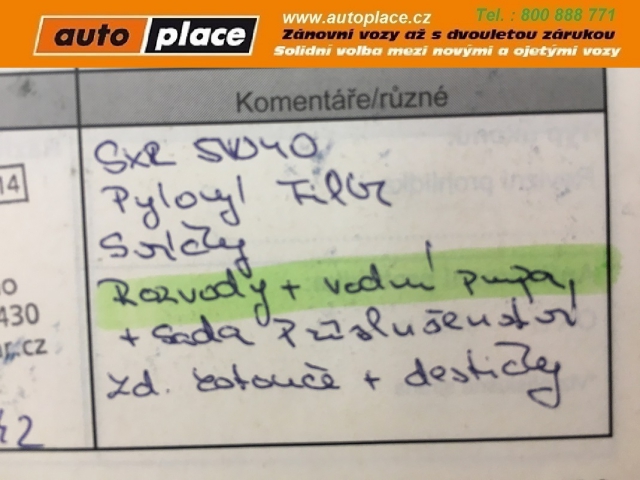 auto place
www.autoplace.cz
Tel. : 800 888 771
Zánovní vozy až s dvouletou zárukou
Solidní volba mezi novými a ojetými vozy
Komentáře/různé
SXR 5W40
Pylový Filtr
Svíčky
Rozvody + vodní pumpa,
+ sada Příslušenství
zd. kotouče + destičky
14
o
430
r.cz
42